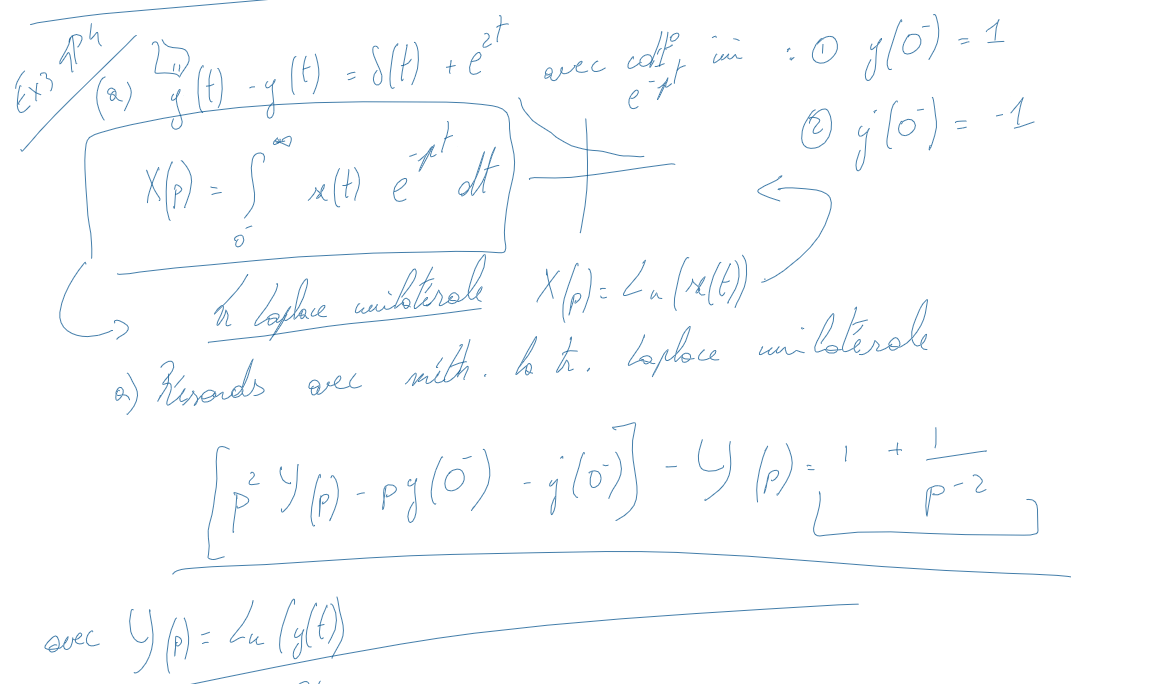 Ex3
(a) ÿ(t) - y(t) = δ(t) + e^{2t} avec cdt° ini : ① y(0⁻) = 1
e^{-pt}
② ẏ(0⁻) = -1
X(p) = ∫_{0⁻}^{∞} x(t) e^{-pt} dt
tr Laplace unilatérale X(p) = Lu(x(t))
a) Résonds avec méth. la tr. Laplace unilatérale
[p² Y(p) - p y(0⁻) - ẏ(0⁻)] - Y(p) = 1 + 1/(p-2)
avec Y(p) = Lu(y(t))